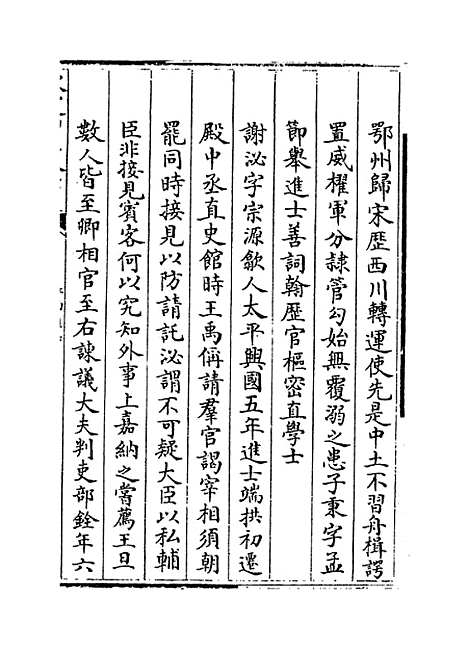 鄂州歸宋歴西川轉運使先是中土不習舟楫諤
置威櫂軍分隷管勾始無覆溺之患子秉字孟
節舉進士善詞翰歴官樞密直學士
謝泌字宗源歙人太平興國五年進士端拱初遷
殿中丞直史館時王禹偁請羣官謁宰相須朝
罷同時接見以防請託泌謂不可疑大臣以私輔
臣非接見賓客何以究知外事上嘉納之嘗薦王旦
數人皆至卿相官至右諫議大夫判吏部銓年六